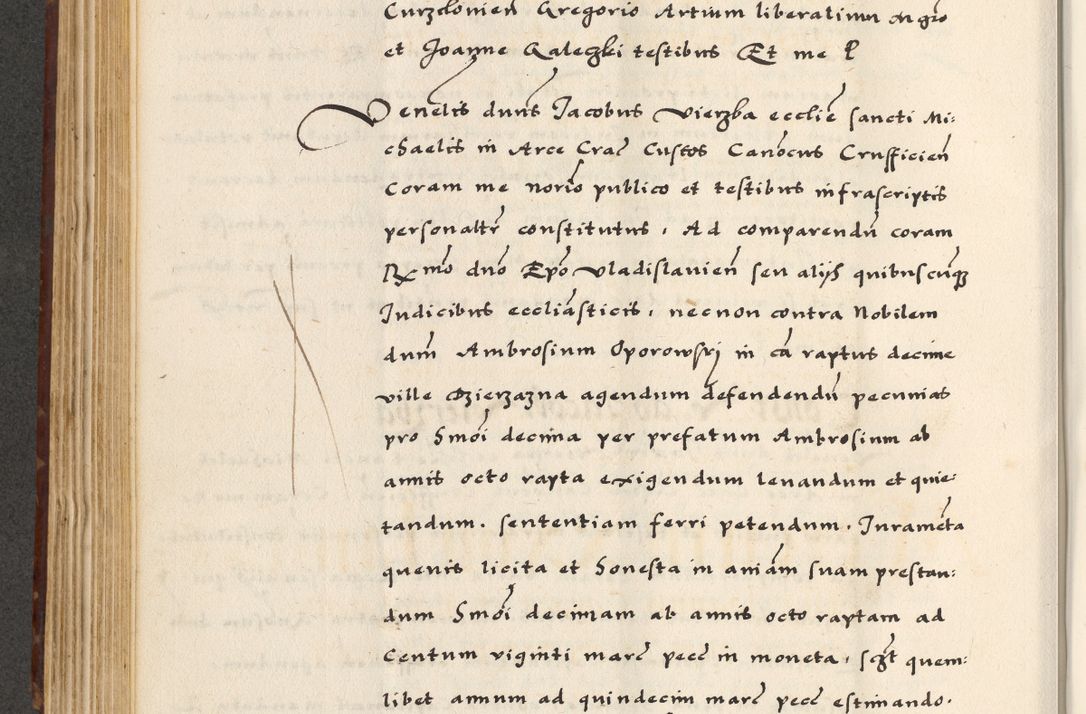 Curzelovien Gregorio Artium liberalium Mgro
et Joanne Galeczki testibus Et me P
Venelis dnus Jacobus Vierzba ecclie sancti Mi:
chaelis in Arce Crac Custos Canocus Crusficien
Coram me norio publico et testibus infrascriptis
personaltr constitutus, Ad comparendu coram
Rmo dno Epo Vladislauien seu alijs quibuscunq
Iudicibus eccliasticis, necnon contra Nobilem
dnum Ambrosium Oporowski in ca raptus decime
ville Gzierzazna agendum defendendu pecunias
pro hmoi decima per prefatum Ambrosium ab
annis octo rapta exigendum leuandum et quie:
tandum. sententiam ferri petendum. Iurameta
queuis licita et honesta in aniam suam prestan:
dum hmoi decimam ab annis octo raptam ad
Centum viginti marc pecc in moneta, sclt quem:
libet annum ad quindecim marc pecc estimando.